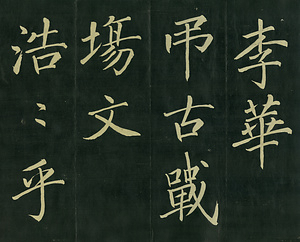 李華
弔古戰
場文
浩〻乎